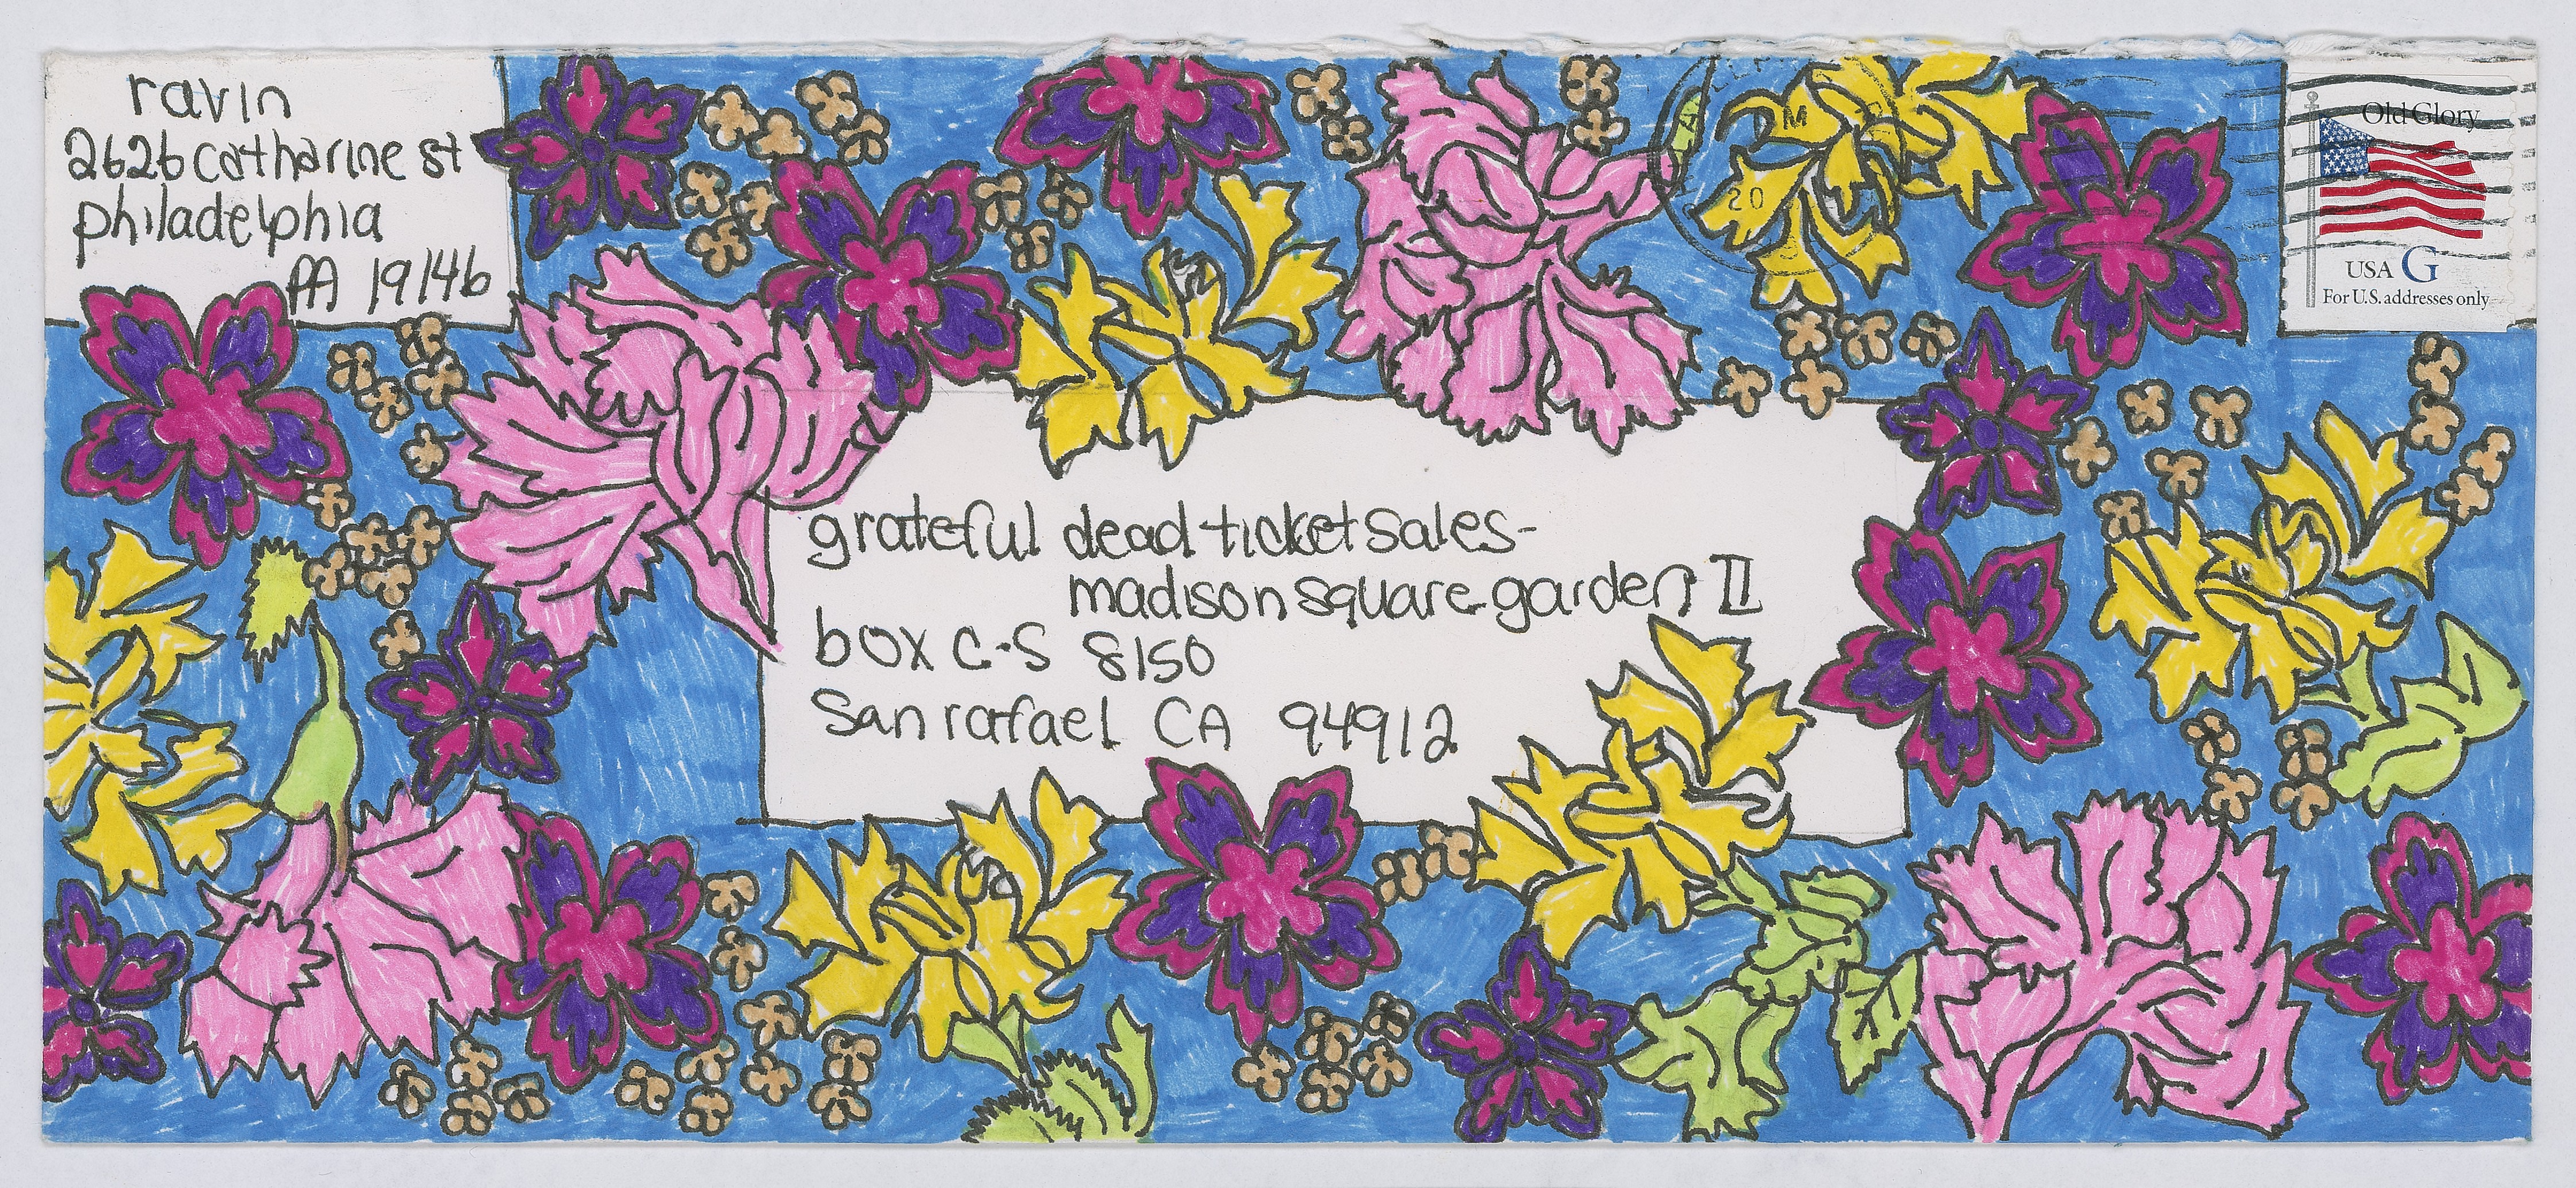 ravin
2626 catharine st
philadelphia
PA 19146
Old Glory
USA G
For U.S. addresses only
PM
20
grateful dead ticket sales-
madison square garden II
box C-S 8150
San rafael CA 94912